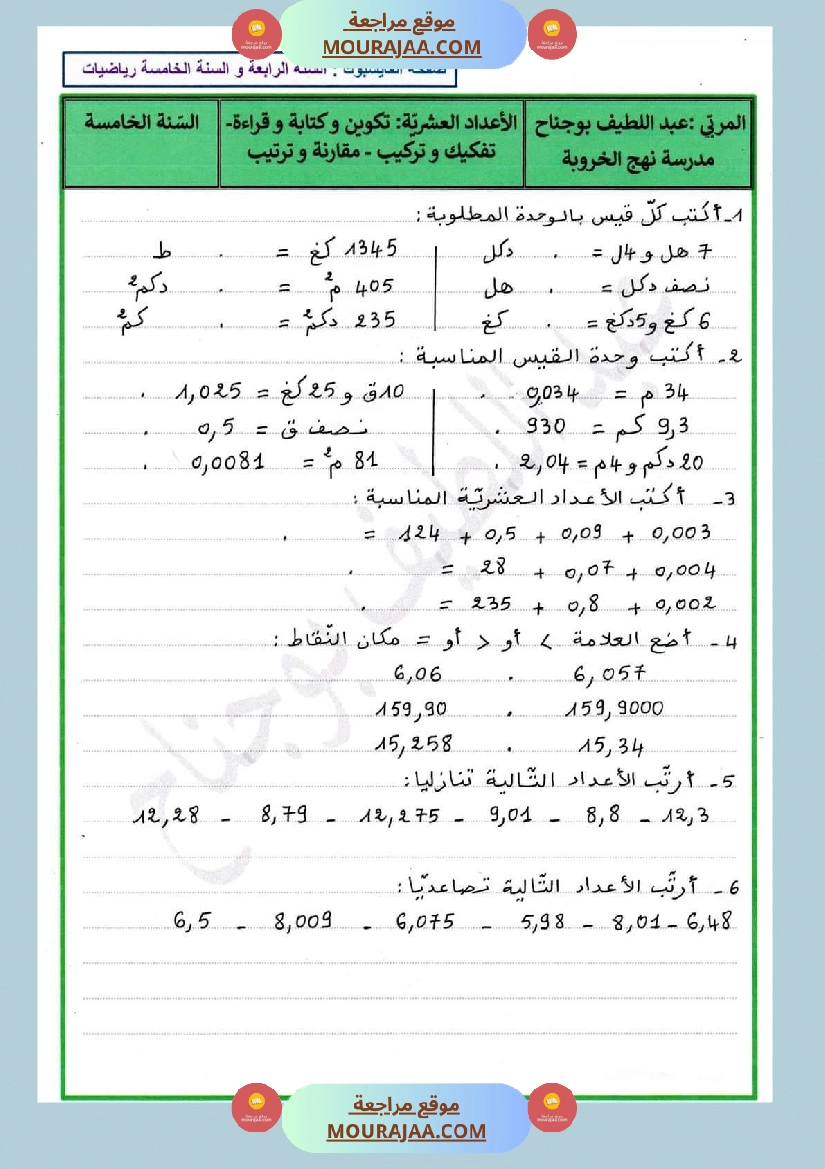 موقع مراجعة
MOURAJAA.COM
صفحة الفايسبوك : السنة الرابعة و السنة الخامسة رياضيات
المربّي :عبد اللطيف بوجناح
مدرسة نهج الخروبة
الأعداد العشريّة: تكوين و كتابة و قراءة-
تفكيك و تركيب - مقارنة و ترتيب
السّنة الخامسة
1- أكتب كلّ قيس بالوحدة المطلوبة :
7 هل و 4ل = . دكل
1345 كغ = . ط
نصف دكل = . هل
405 م² = . دكم²
6 كغ و 5دكغ = . كغ
235 دكم² = . كم²
2- أكتب وحدة القيس المناسبة :
34 م = 0,034 .
10ق و 25 كغ = 1,025 .
9,3 كم = 930 .
نصف ق = 0,5 .
20 دكم و 4م = 2,04 .
81 م² = 0,0081 .
3- أكتب الأعداد العشريّة المناسبة :
0,003 + 0,09 + 0,5 + 124 = .
0,004 + 0,07 + 28 = .
0,002 + 0,8 + 235 = .
4- أضع العلامة < أو > أو = مكان النّقاط :
6,057 . 6,06
159,9000 . 159,90
15,34 . 15,258
5- أرتّب الأعداد التّالية تنازليا:
12,3 - 8,8 - 9,01 - 12,275 - 8,79 - 12,28
6- أرتّب الأعداد التّالية تصاعديّا:
6,48 - 8,01 - 5,98 - 6,075 - 8,009 - 6,5
عبد اللطيف بوجناح
موقع مراجعة
MOURAJAA.COM